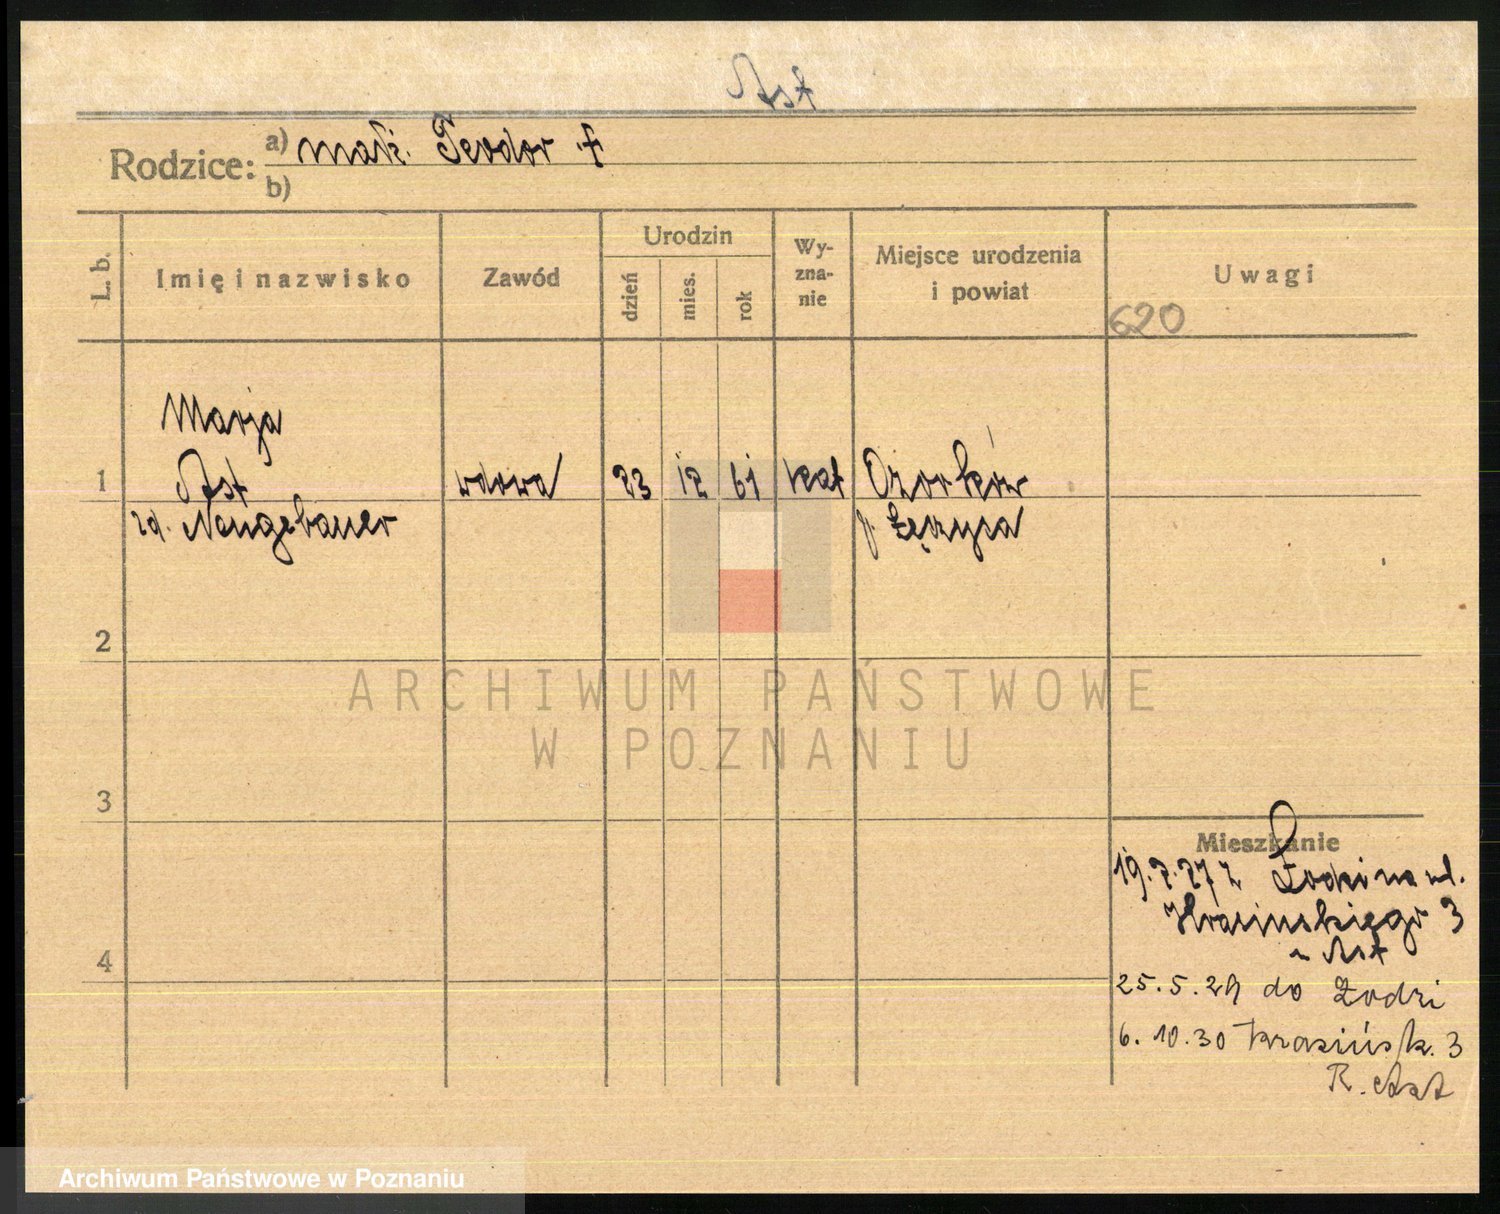 Ast
Rodzice: a) małż. Teodor †
b)
L. b.
Imię i nazwisko
Zawód
Urodzin
dzień
mies.
rok
Wy-
zna-
nie
Miejsce urodzenia
i powiat
Uwagi
620
Marja
1 Ast wdowa 23 12 61 kat Ozorków
zd. Neugebauer p Łęczyca
2
3
4
Mieszkanie
19.7.27 z Łodzi na ul.
Krasińskiego 3
u Ast
25.5.29 do Łodzi
6.10.30 Krasińsk. 3
R. Ast
ARCHIWUM PAŃSTWOWE
W POZNANIU
Archiwum Państwowe w Poznaniu